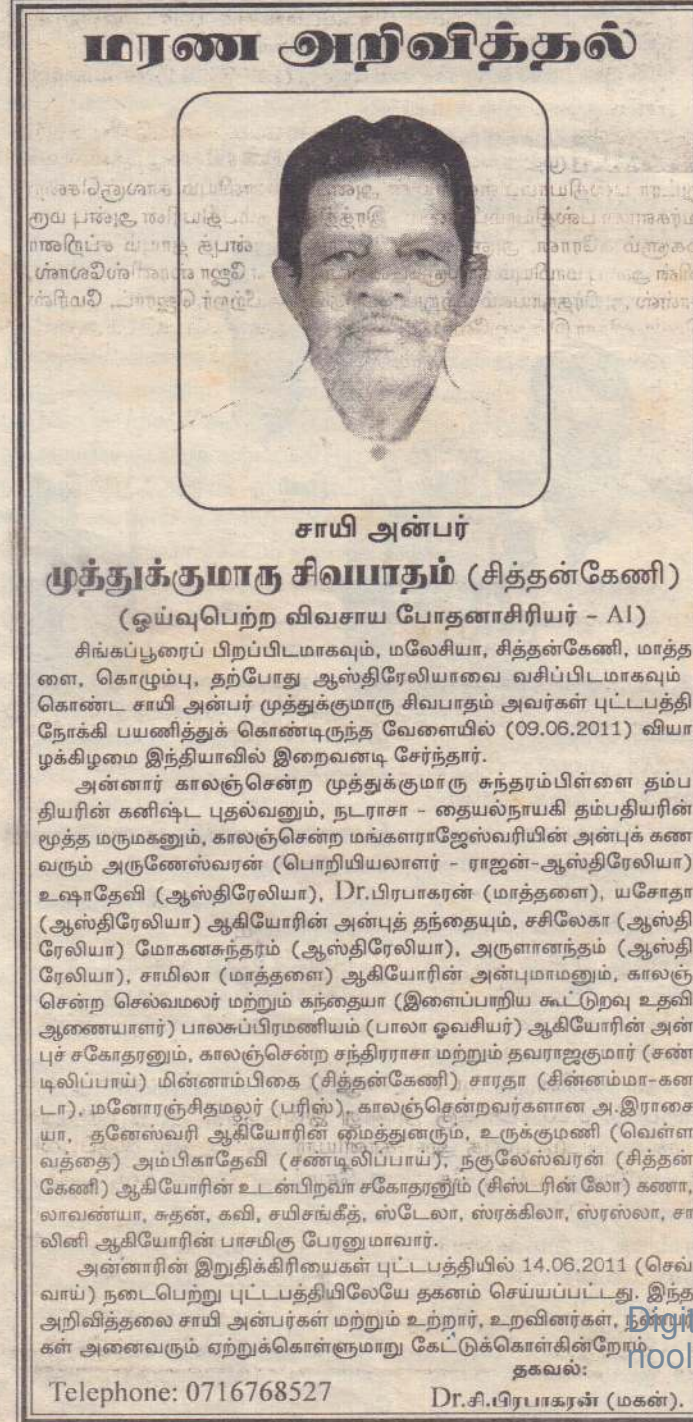 மரண அறிவித்தல்
சாயி அன்பர்
முத்துக்குமாரு சிவபாதம் (சித்தன்கேணி)
(ஓய்வுபெற்ற விவசாய போதனாசிரியர் – AI)
சிங்கப்பூரைப் பிறப்பிடமாகவும், மலேசியா, சித்தன்கேணி, மாத்த
ளை, கொழும்பு, தற்போது ஆஸ்திரேலியாவை வசிப்பிடமாகவும்
கொண்ட சாயி அன்பர் முத்துக்குமாரு சிவபாதம் அவர்கள் புட்டபத்தி
நோக்கி பயணித்துக் கொண்டிருந்த வேளையில் (09.06.2011) வியா
ழக்கிழமை இந்தியாவில் இறைவனடி சேர்ந்தார்.
அன்னார் காலஞ்சென்ற முத்துக்குமாரு சுந்தரம்பிள்ளை தம்ப
தியரின் கனிஷ்ட புதல்வனும், நடராசா – தையல்நாயகி தம்பதியரின்
மூத்த மருமகனும், காலஞ்சென்ற மங்களராஜேஸ்வரியின் அன்புக் கண
வரும் அருணேஸ்வரன் (பொறியியலாளர் – ராஜன்-ஆஸ்திரேலியா)
உஷாதேவி (ஆஸ்திரேலியா), Dr.பிரபாகரன் (மாத்தளை), யசோதா
(ஆஸ்திரேலியா) ஆகியோரின் அன்புத் தந்தையும், சசிலேகா (ஆஸ்தி
ரேலியா) மோகனசுந்தரம் (ஆஸ்திரேலியா), அருளானந்தம் (ஆஸ்தி
ரேலியா), சாமிலா (மாத்தளை) ஆகியோரின் அன்புமாமனும், காலஞ்
சென்ற செல்வமலர் மற்றும் கந்தையா (இளைப்பாறிய கூட்டுறவு உதவி
ஆணையாளர்) பாலசுப்பிரமணியம் (பாலா ஓவசியர்) ஆகியோரின் அன்
புச் சகோதரனும், காலஞ்சென்ற சந்திரராசா மற்றும் தவராஜகுமார் (சண்
டிலிப்பாய்) மின்னாம்பிகை (சித்தன்கேணி) சாரதா (சின்னம்மா-கன
டா), மனோரஞ்சிதமலர் (பரிஸ்), காலஞ்சென்றவர்களான அ.இராசை
யா, தனேஸ்வரி ஆகியோரின் மைத்துனரும், உருக்குமணி (வெள்ள
வத்தை) அம்பிகாதேவி (சண்டிலிப்பாய்), நகுலேஸ்வரன் (சித்தன்
கேணி) ஆகியோரின் உடன்பிறவா சகோதரனும் (சிஸ்டரின் லோ) கணா,
லாவண்யா, சுதன், கவி, சயிசங்கீத், ஸ்டேலா, ஸ்ரக்கிலா, ஸ்ரஸ்லா, சா
லினி ஆகியோரின் பாசமிகு பேரனுமாவார்.
அன்னாரின் இறுதிக்கிரியைகள் புட்டபத்தியில் 14.06.2011 (செவ்
வாய்) நடைபெற்று புட்டபத்தியிலேயே தகனம் செய்யப்பட்டது. இந்த
அறிவித்தலை சாயி அன்பர்கள் மற்றும் உற்றார், உறவினர்கள், நண்பர்
கள் அனைவரும் ஏற்றுக்கொள்ளுமாறு கேட்டுக்கொள்கின்றோம்.
தகவல்:
Telephone: 0716768527 Dr.சி.பிரபாகரன் (மகன்).